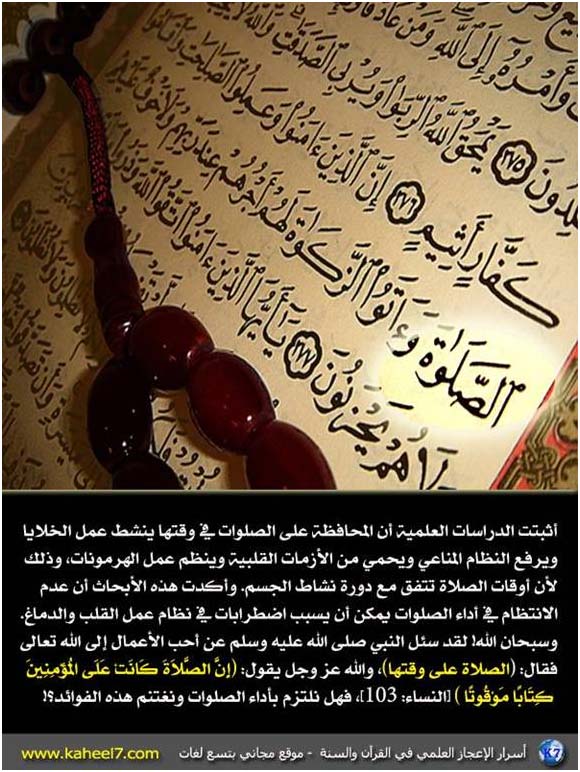 وَأَمْرُهُۥٓ إِلَى ٱللَّهِ وَمَنْ عَادَ
لِدُونَ ٢٧٥ يَمْحَقُ ٱللَّهُ ٱلرِّبَوٰا۟ وَيُرْبِى ٱلصَّدَقَٰتِ
كَفَّارٍ أَثِيمٍ ٢٧٦ إِنَّ ٱلَّذِينَ ءَامَنُوا۟ وَعَمِلُوا۟ ٱلصَّٰلِحَٰتِ وَأَقَامُوا۟
ٱلصَّلَوٰةَ وَءَاتَوُا۟ ٱلزَّكَوٰةَ لَهُمْ أَجْرُهُمْ عِندَ رَبِّهِمْ وَلَا خَوْفٌ عَلَيْهِمْ
وَلَا هُمْ يَحْزَنُونَ ٢٧٧ يَٰٓأَيُّهَا ٱلَّذِينَ ءَامَنُوا۟ ٱتَّقُوا۟ ٱللَّهَ وَذَرُوا۟
أثبتت الدراسات العلمية أن المحافظة على الصلوات في وقتها ينشط عمل الخلايا
ويرفع النظام المناعي ويحمي من الأزمات القلبية وينظم عمل الهرمونات، وذلك
لأن أوقات الصلاة تتفق مع دورة نشاط الجسم. وأكدت هذه الأبحاث أن عدم
الانتظام في أداء الصلوات يمكن أن يسبب اضطرابات في نظام عمل القلب والدماغ.
وسبحان الله! لقد سئل النبي صلى الله عليه وسلم عن أحب الأعمال إلى الله تعالى
فقال: (الصلاة على وقتها)، والله عز وجل يقول: (إِنَّ الصَّلَاةَ كَانَتْ عَلَى الْمُؤْمِنِينَ
كِتَابًا مَوْقُوتًا ) [النساء: 103]، فهل نلتزم بأداء الصلوات ونغتنم هذه الفوائد؟!
K7 أسرار الإعجاز العلمي في القرآن والسنة - موقع مجاني بتسع لغات www.kaheel7.com